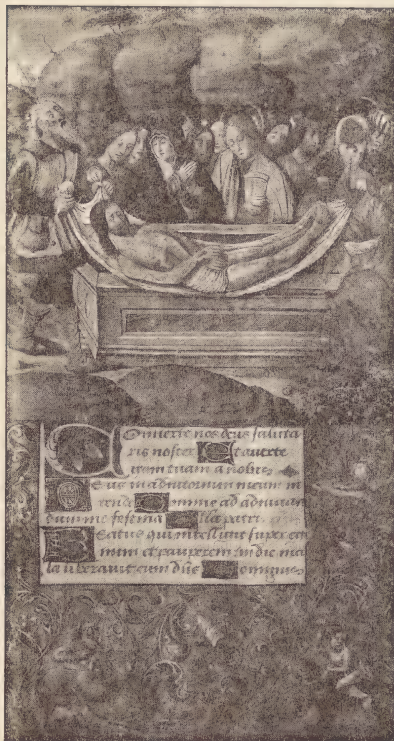 Converte nos deus saluta
ris noster Et averte
iram tuam a nobis
Deus in adiutorium meum in
tende Domine ad adiuvan
dum me festina Gloria patri
Beatus qui intelligit super egenum
et pauperem in die ma
la liberavit eum dñs